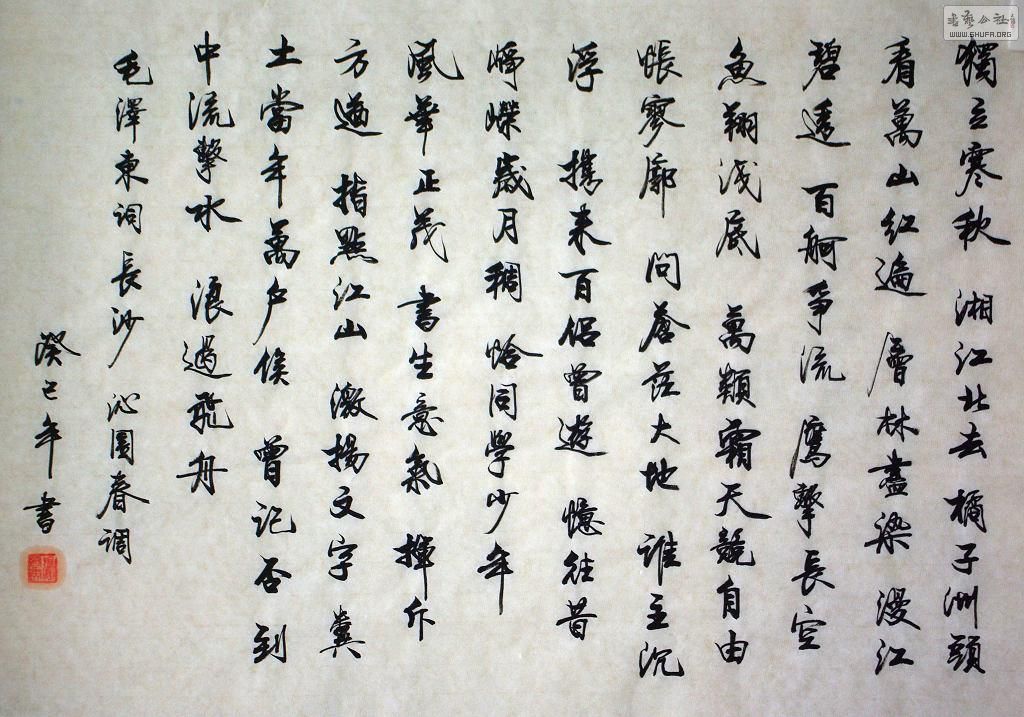 獨立寒秋 湘江北去 橘子洲頭
看萬山紅遍 層林盡染 漫江
碧透 百舸爭流 鷹擊長空
魚翔淺底 萬類霜天競自由
悵寥廓 問蒼茫大地 誰主沉
浮 携來百侶曾遊 憶往昔
崢嶸歲月稠 恰同學少年
風華正茂 書生意氣 揮斥
方遒 指點江山 激揚文字 糞
土當年萬戶侯 曾記否 到
中流擊水 浪遏飛舟
毛澤東詞 長沙 沁園春調
癸巳年書
書藝公社
WWW.SHUFA.ORG